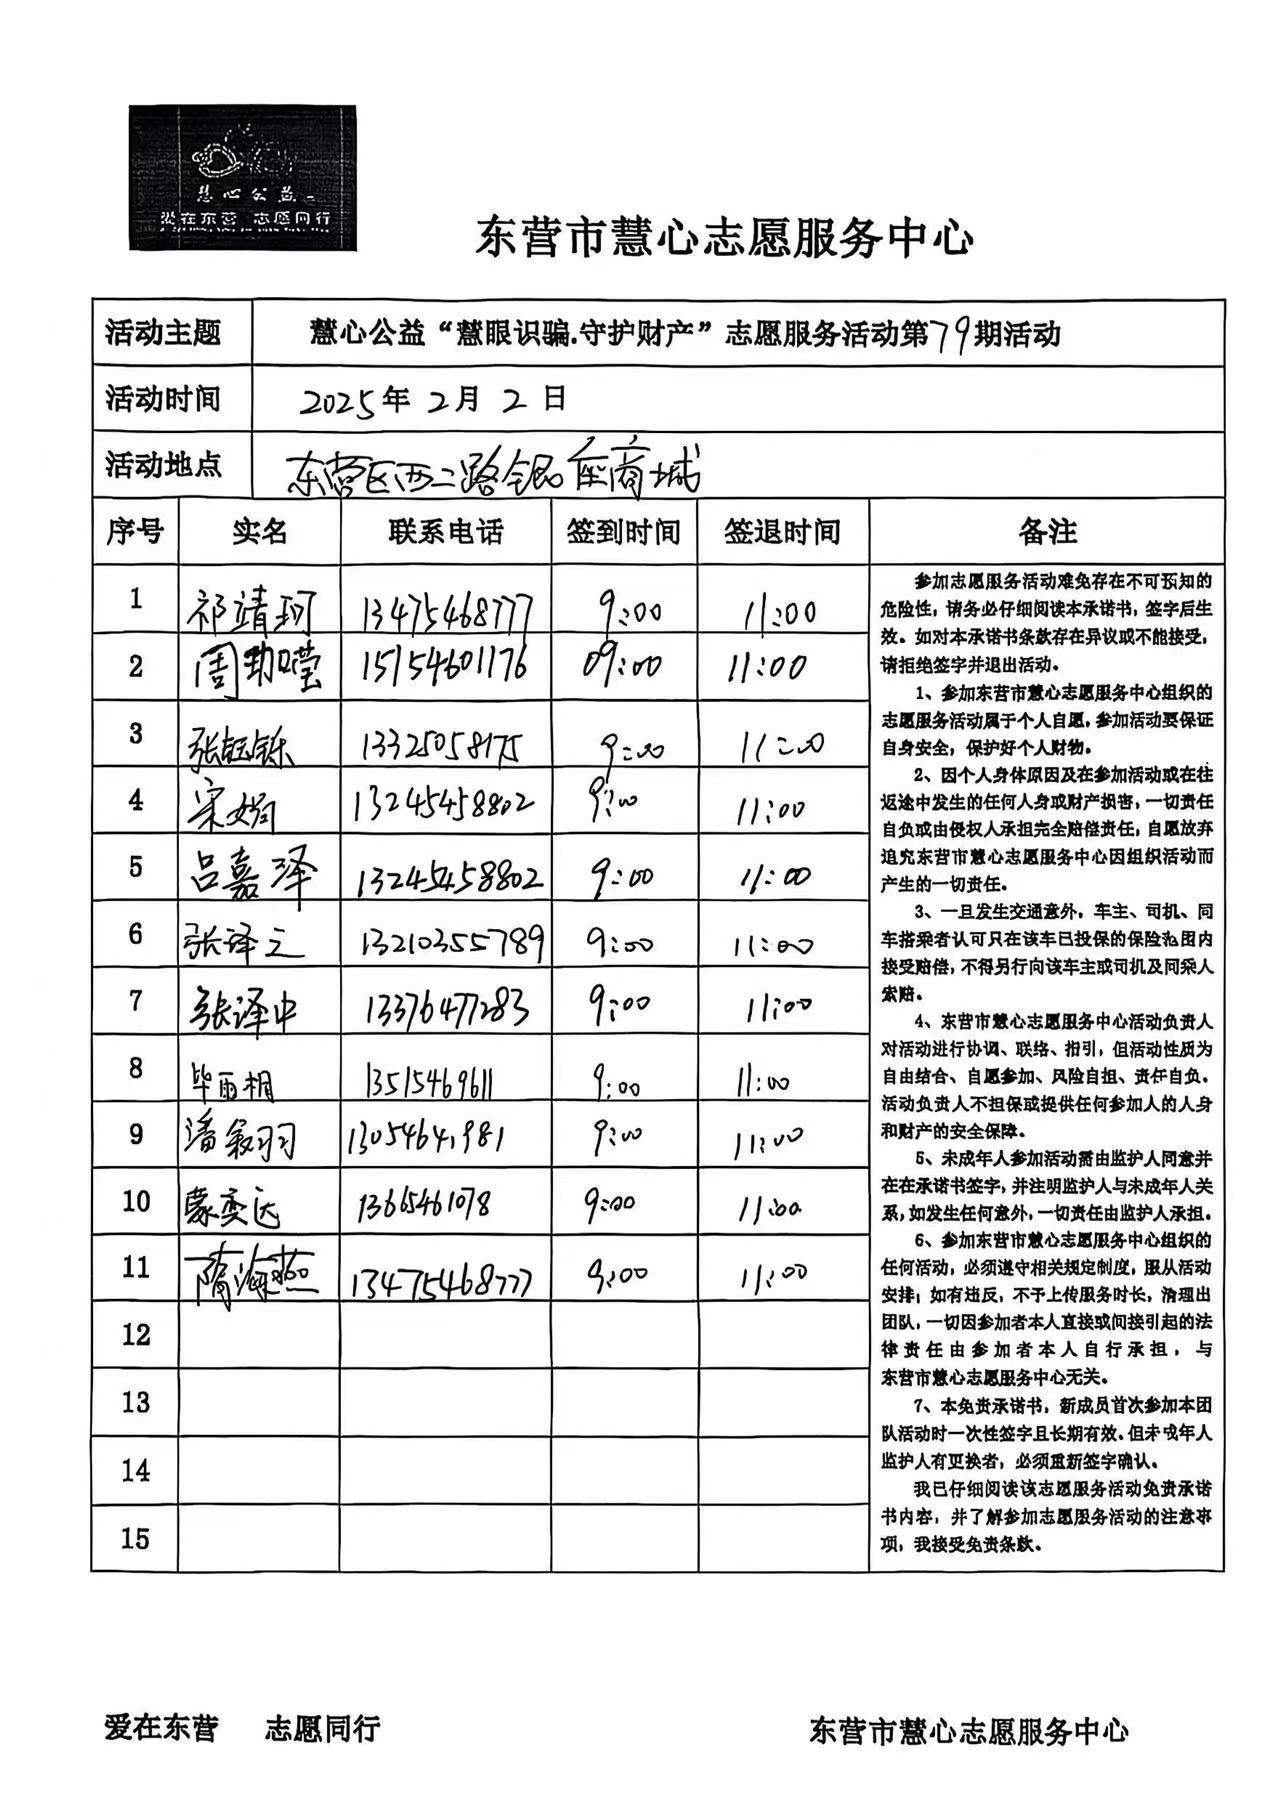 慧心公益
爱在东营 志愿同行
东营市慧心志愿服务中心
活动主题 慧心公益“慧眼识骗.守护财产”志愿服务活动第79期活动
活动时间 2025年2月2日
活动地点 东营区西二路银座商城
序号 实名 联系电话 签到时间 签退时间 备注
1 祁靖珂 13475468777 9:00 11:00
2 周 15154601176 09:00 11:00
3 张钰铄 13325058175 9:00 11:00
4 宋 13245458802 9:00 11:00
5 吕嘉泽 13245458802 9:00 11:00
6 张译之 13210355789 9:00 11:00
7 张译中 13376477283 9:00 11:00
8 毕雨桐 13515469611 9:00 11:00
9 潘羽 9:00 11:00
10 蒙奕达 1365461078 9:00 11:00
11 隋海燕 13475468777 9:00 11:00
12
13
14
15
参加志愿服务活动难免存在不可预知的
危险性，请务必仔细阅读本承诺书，签字后生
效。如对本承诺书条款存在异议或不能接受，
请拒绝签字并退出活动。
1、参加东营市慧心志愿服务中心组织的
志愿服务活动属于个人自愿，参加活动要保证
自身安全，保护好个人财物。
2、因个人身体原因及在参加活动或在往
返途中发生的任何人身或财产损害，一切责任
自负或由侵权人承担完全赔偿责任，自愿放弃
追究东营市慧心志愿服务中心因组织活动而
产生的一切责任。
3、一旦发生交通意外，车主、司机、同
车搭乘者认可只在该车已投保的保险范围内
接受赔偿，不得另行向该车主或司机及同乘人
索赔。
4、东营市慧心志愿服务中心活动负责人
对活动进行协调、联络、指引，但活动性质为
自由结合、自愿参加、风险自担、责任自负。
活动负责人不担保或提供任何参加人的人身
和财产的安全保障。
5、未成年人参加活动需由监护人同意并
在在承诺书签字，并注明监护人与未成年人关
系，如发生任何意外，一切责任由监护人承担。
6、参加东营市慧心志愿服务中心组织的
任何活动，必须遵守相关规定制度，服从活动
安排；如有违反，不予上传服务时长，清理出
团队，一切因参加者本人直接或间接引起的法
律责任由参加者本人自行承担，与
东营市慧心志愿服务中心无关。
7、本免责承诺书，新成员首次参加本团
队活动时一次性签字且长期有效。但未成年人
监护人有更换者，必须重新签字确认。
我已仔细阅读该志愿服务活动免责承诺
书内容，并了解参加志愿服务活动的注意事
项，我接受免责条款。
爱在东营 志愿同行
东营市慧心志愿服务中心